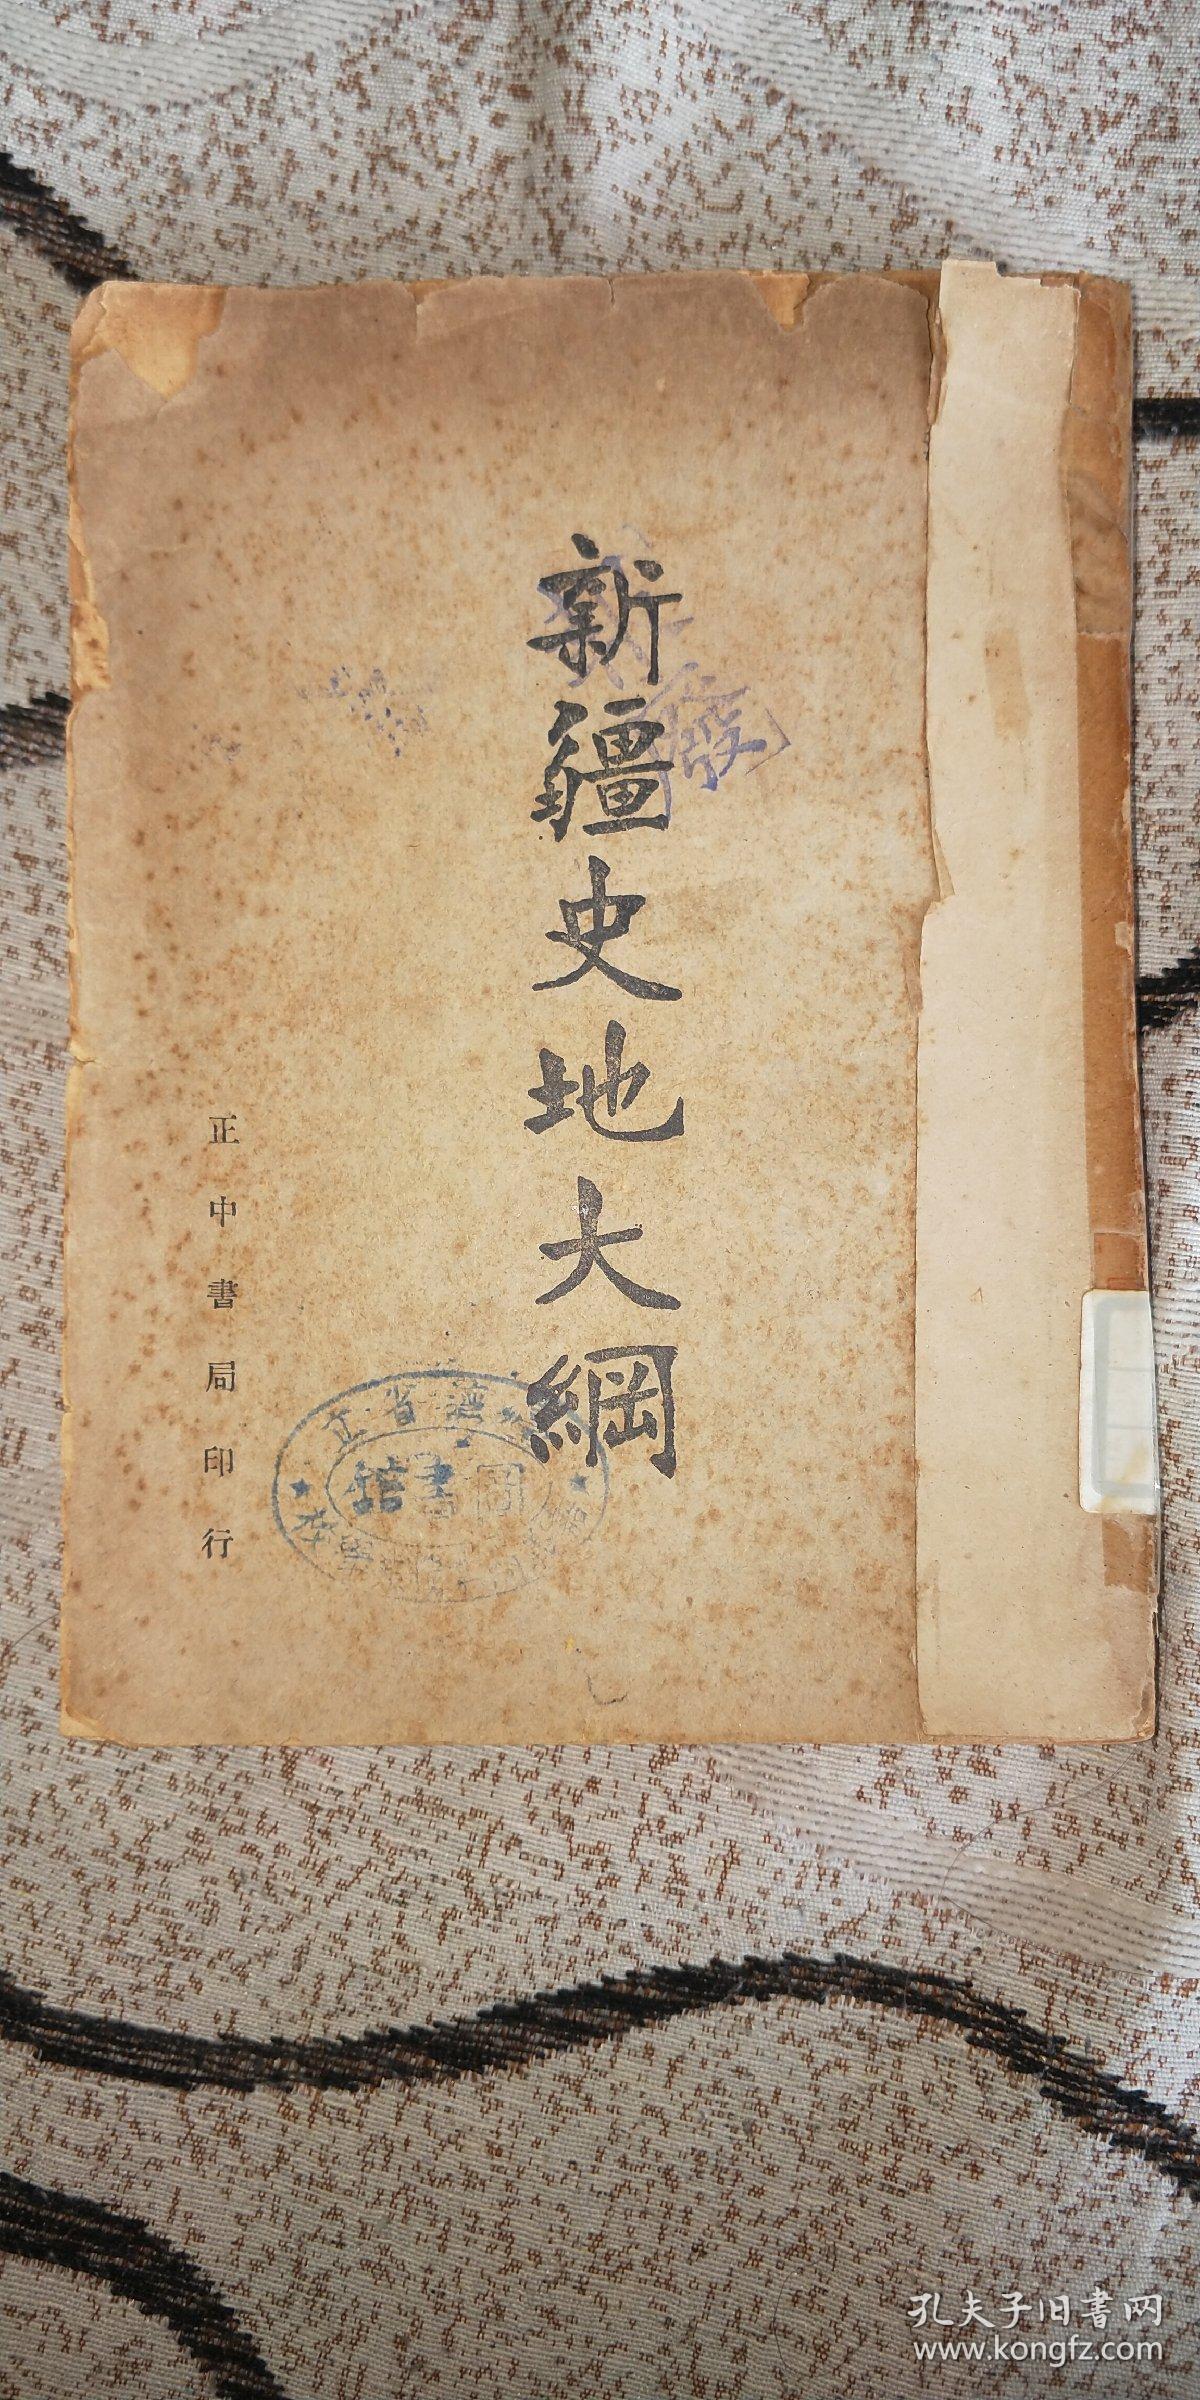 新疆史地大綱
正中書局印行
廢
圖書館
孔夫子旧書网
www.kongfz.com